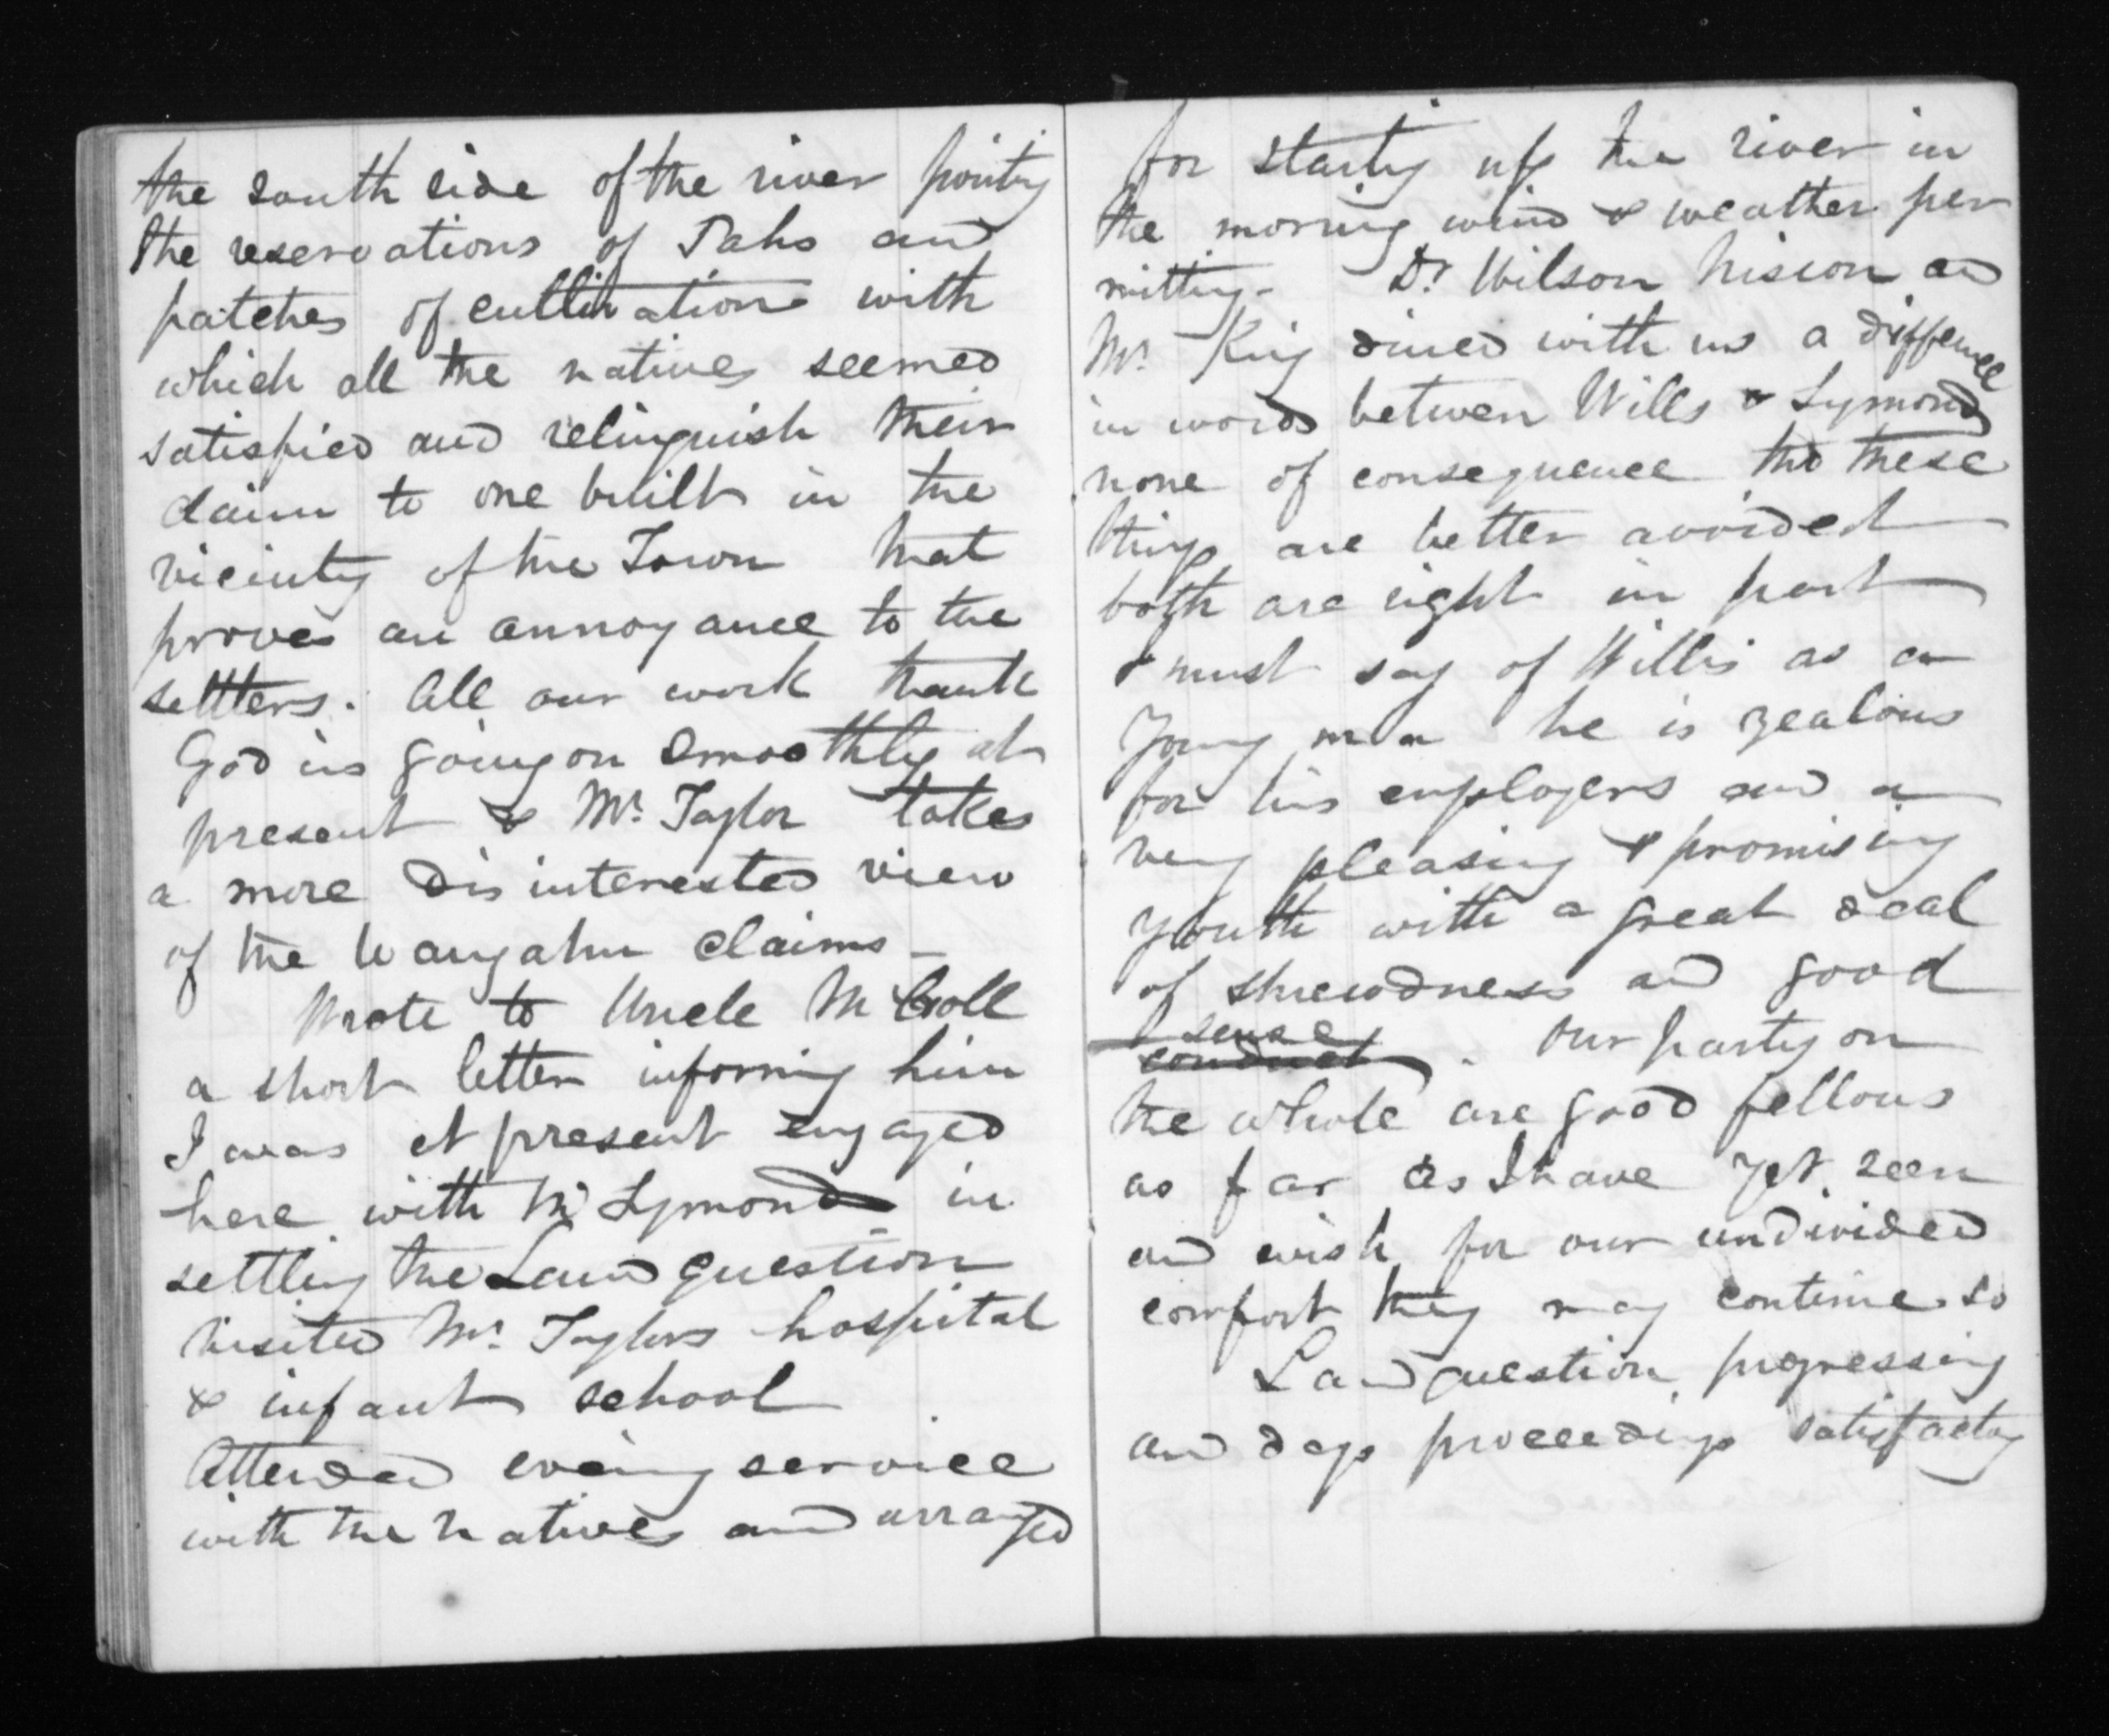 the south side of the river pointg
the reservations of Pahs and
patches of cultivation with
which all the natives seemed
satisfied and relinquish their
claim to one built in the
vicinty of the Town that
proves an annoyance to the
settlers. All our work thank
God is going on smoothly at
present & Mr. Taylor takes
a more disinterested view
of the Wangahu claims –
Wrote to Uncle
a short letter informing him
I was at present engaged
here with Mr Symonds in
settling the Land question
visited Mr. Taylors hospital
& infant school
Attended evening service
with the natives and arranged
for startg up the river in
the morning wind & weather per
mitting – Dr. Wilson Nixon and
Mr. King dined with us a difference
in words between Wills & Symonds
none of consequence tho these
things are better avoided
both are right in part
I must say of Willis as a
young man he is zealous
for his employers and a
very pleasing & promising
youth with a great deal
of shrewdness and good
sense
conduct . Our party on
the whole are good fellows
as far as I have yet seen
and wish for our undivided
comfort they may continue so
Land question progressing
and days proceedings satisfactory